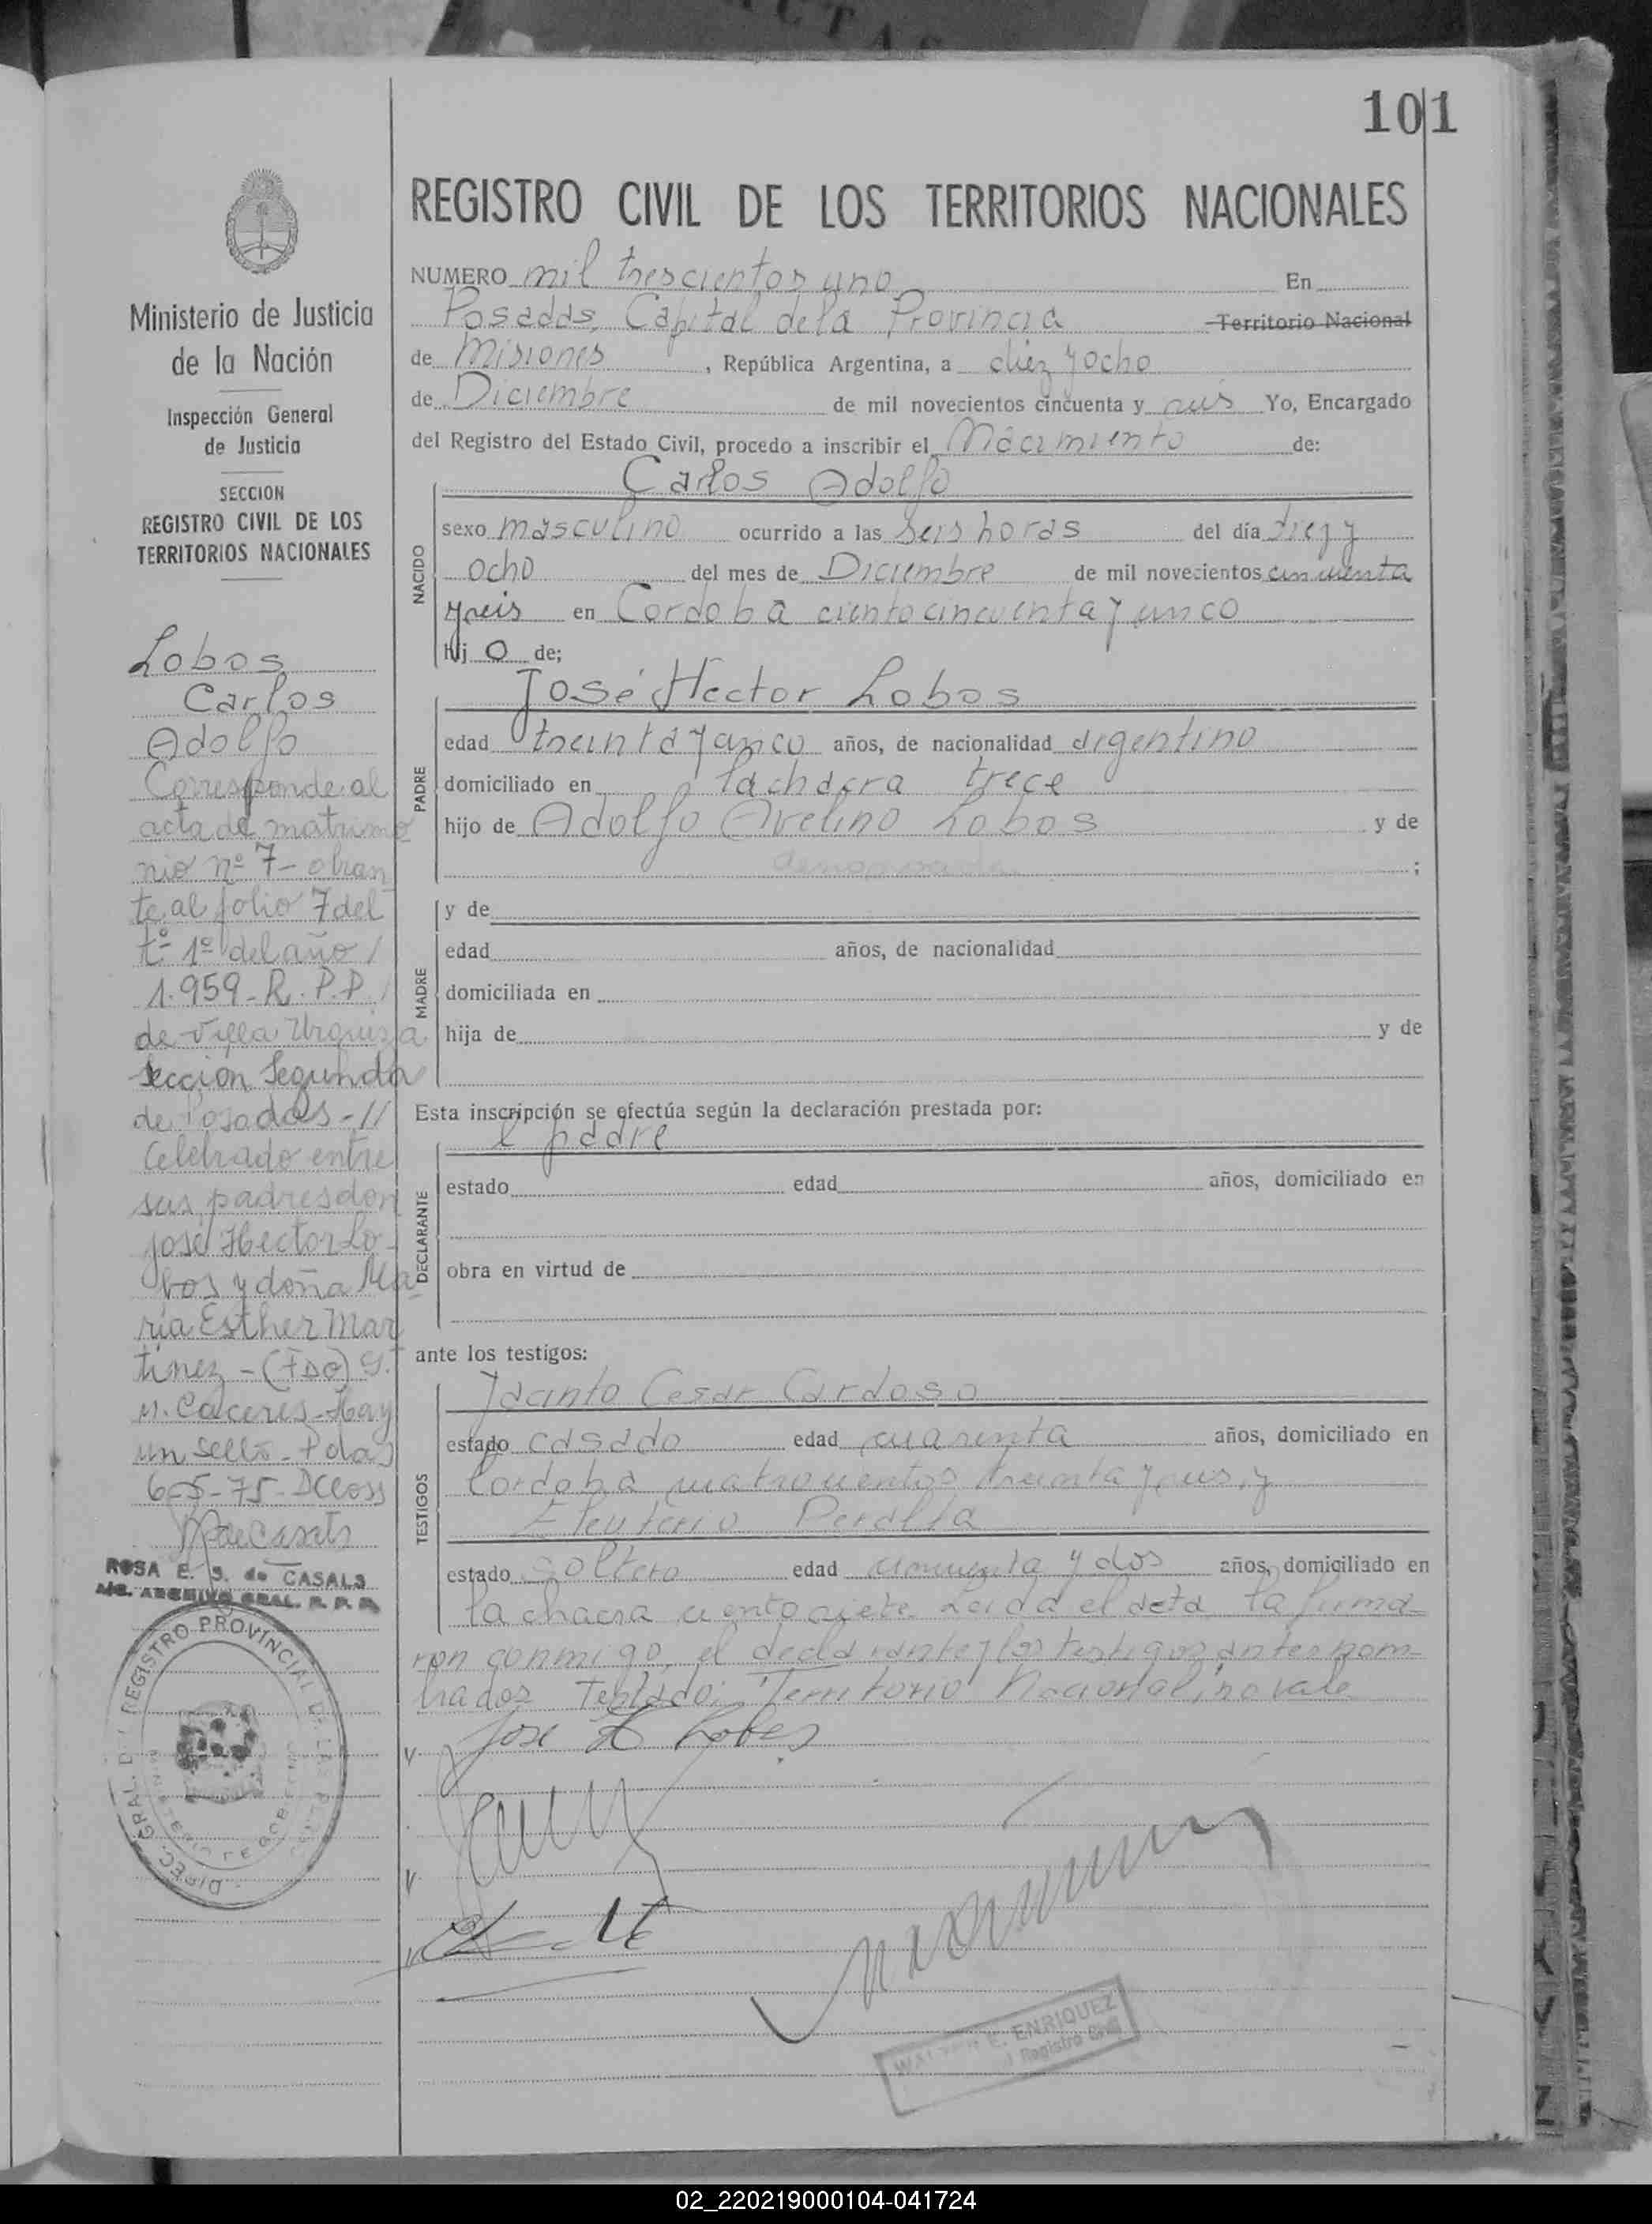 CTAS
101
REGISTRO CIVIL DE LOS TERRITORIOS NACIONALES
NUMERO mil trescientos uno En
Posadas, Capital de la Provincia Territorio Nacional
de Misiones, República Argentina, a diez y ocho
de Diciembre de mil novecientos cincuenta y seis Yo, Encargado
del Registro del Estado Civil, procedo a inscribir el Nacimiento de:
Carlos Adolfo
NACIDO
sexo masculino ocurrido a las seis horas del día diez y
ocho del mes de Diciembre de mil novecientos cincuenta
y seis en Cordoba ciento cincuenta y cinco
hij o de;
José Hector Lobos
PADRE
edad treinta y cinco años, de nacionalidad argentino
domiciliado en la chacra trece
hijo de Adolfo Avelino Lobos y de
;
MADRE
y de
edad años, de nacionalidad
domiciliada en
hija de y de
Esta inscripción se efectúa según la declaración prestada por:
el padre
DECLARANTE
estado edad años, domiciliado en
obra en virtud de
ante los testigos:
TESTIGOS
Jacinto Cesar Cardoso
estado casado edad cuarenta años, domiciliado en
Cordoba cuatrocientos treinta y seis, y
Eleuterio Peralta
estado soltero edad cincuenta y dos años, domiciliado en
la chacra ciento siete. Leida el acta, la firma-
ron conmigo, el declarante y los testigos antes nom-
brados. Testado: Territorio Nacional, no vale
Jose H Lobos
E. ENRIQUEZ
Registro Civil
Ministerio de Justicia
de la Nación
Inspección General
de Justicia
SECCION
REGISTRO CIVIL DE LOS
TERRITORIOS NACIONALES
Lobos
Carlos
Adolfo
Corresponde al
acta de matrimo
nio nº 7- obran
te al folio 7 del
tº 1º del año /
1.959- R. P.P. /
de Villa Urquiza
Seccion Segunda
de Posadas-//
Celebrado entre
sus padres don
José Hector Lo-
bos y doña Ma-
ria Esther Mar
tinez - (FDO) G.
M. Caceres- Hay
un sello- Pdas
6-5-75-
ROSA E. S. de CASALS
ARCHIVO GRAL. R. P. P.
DIREC. GRAL. DEL REGISTRO PROVINCIAL DE LAS PERSONAS
MINISTERIO DE GOBIERNO
02_220219000104-041724